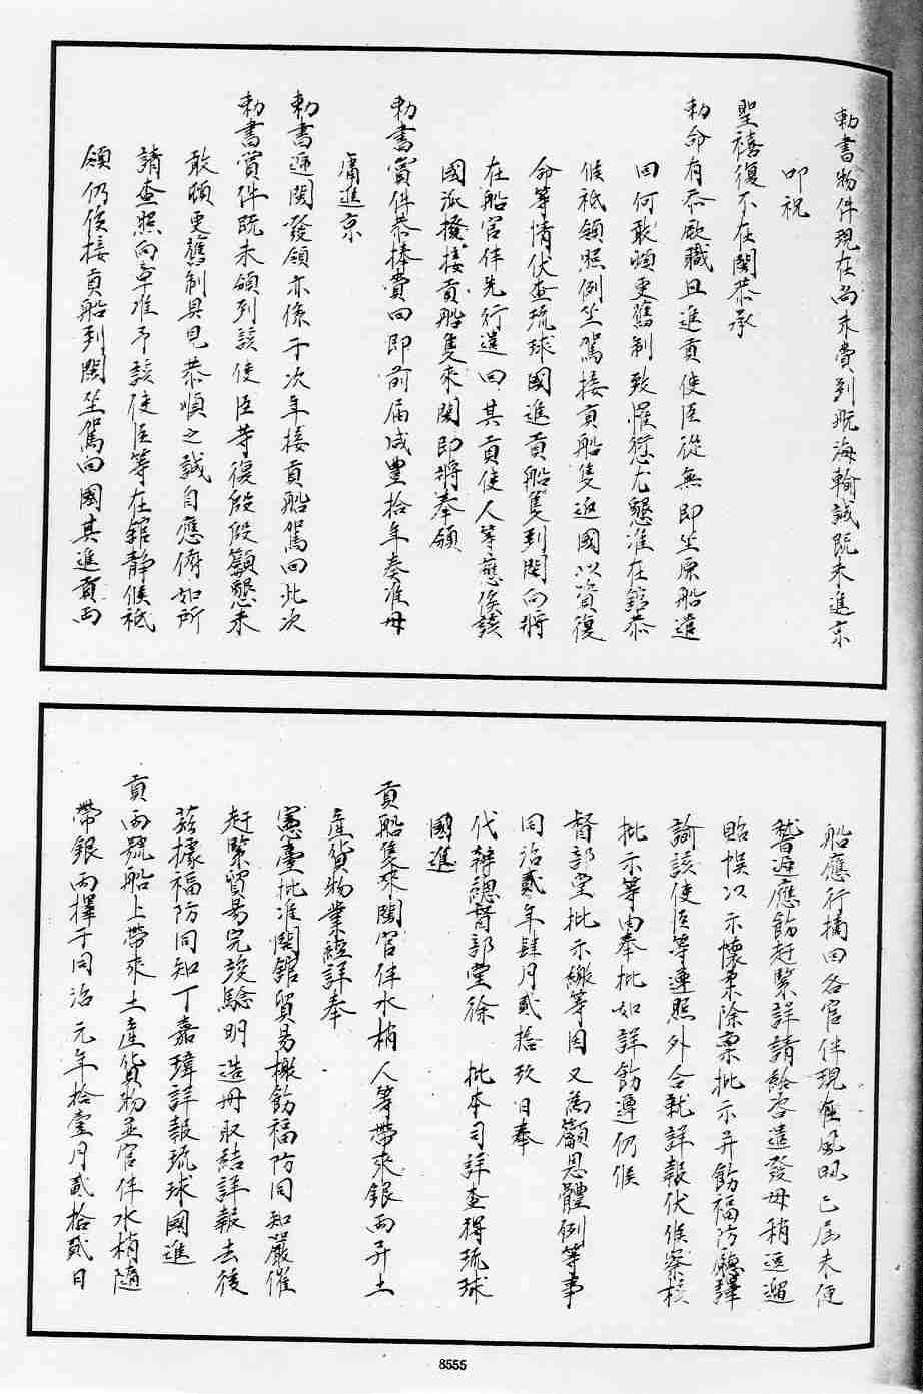 勅書物件現在尚未賫到既海輸誠既未進京
叩祝
聖禧復不在閩恭承
勅命有忝厥職且進貢使臣從無即坐原船遣
回何敢頓更舊制致罹愆尤懇准在館恭
候祗領照例坐駕接貢船隻返國以資復
命等情伏查琉球國進貢船隻到閩向將
在船官伴先行遣回其貢使人等應俟該
國派撥接貢船隻來閩即將奉領
勅書賞件恭捧賫回即前届咸豐拾年奏准毋
庸進京
勅書遞閩發領亦係于次年接貢船駕回此次
勅書賞件既未頒到該使臣等復殷殷籲懇未
敢頓更舊制具見恭順之誠自應俯如所
請查照向章准予該使臣等在館靜候祗
領仍俟接貢船到閩坐駕回國其進貢兩
船應行摘回各官伴現在風汛已届未便
稽遲應飭赶緊詳請給咨遣發毋稍逗遛
貽悞以示懷柔除稟批示并飭福防廳譯
諭該使臣等遵照外合就詳報伏候察核
批示等由奉批如詳飭遵仍候
督部堂批示繳等因又為籲恩體例等事
同治貳年肆月貳拾玖日奉
代辦總督部堂徐 批本司詳查得琉球
國進
貢船隻來閩官伴水梢人等帶來銀兩并土
產貨物業經詳奉
憲臺批准閩館貿易檄飭福防同知嚴催
赶緊貿易完竣驗明造冊取結詳報去後
茲據福防同知丁嘉瑋詳報琉球國進
貢兩號船上帶來土產貨物並官伴水梢隨
帶銀兩擇于同治元年拾壹月貳拾貳日
8555